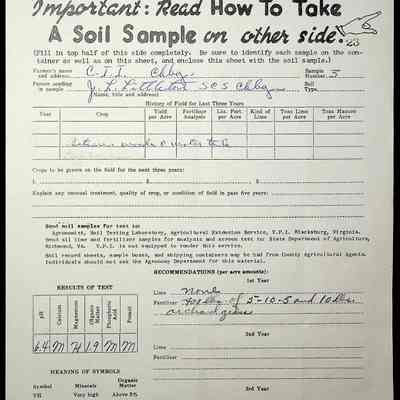 Important: Read How To Take
A Soil Sample on other side.
(Fill in top half of this side completely. Be sure to identify each sample on the con-
tainer as well as on this sheet, and enclose this sheet with the soil sample.)
Farmer's name and address C.I.I. Chbg Sample Number 5
Person sampling in sample J. L. SCS Chbg Soil Type
(Name, title and address)
History of Field for Last Three Years
Year Crop Yield per Acre Fertilizer Analysis Lbs. Fert. per Acre Kind of Lime Tons Lime per Acre Tons Manure per Acre
Crops to be grown on the field for the next three years:
1. 2. 3.
Explain any unusual treatment, quality of crop, or condition of field in past five years:
Send soil samples for test to:
Agronomist, Soil Testing Laboratory, Agricultural Extension Service, V.P.I. Blacksburg, Virginia.
Send all lime and fertilizer samples for analysis and screen test to: State Department of Agriculture,
Richmond, Va. V.P.I. is not equipped to render this service.
Soil record sheets, sample boxes, and shipping containers may be had from County Agricultural Agents.
Individuals should not ask the Agronomy Department for this material.
RECOMMENDATIONS (per acre amounts):
1st Year
RESULTS OF TEST
Lime None
Fertilizer 400 lbs of 5-10-5 and 10 lbs.
orchard grass
pH Calcium Magnesium Organic Matter Phosphoric Acid Potash
6.4 M H 1.9 M M
2nd Year
Lime
Fertilizer
MEANING OF SYMBOLS
Symbol Minerals Organic Matter
VH Very high Above 5%
3rd Year